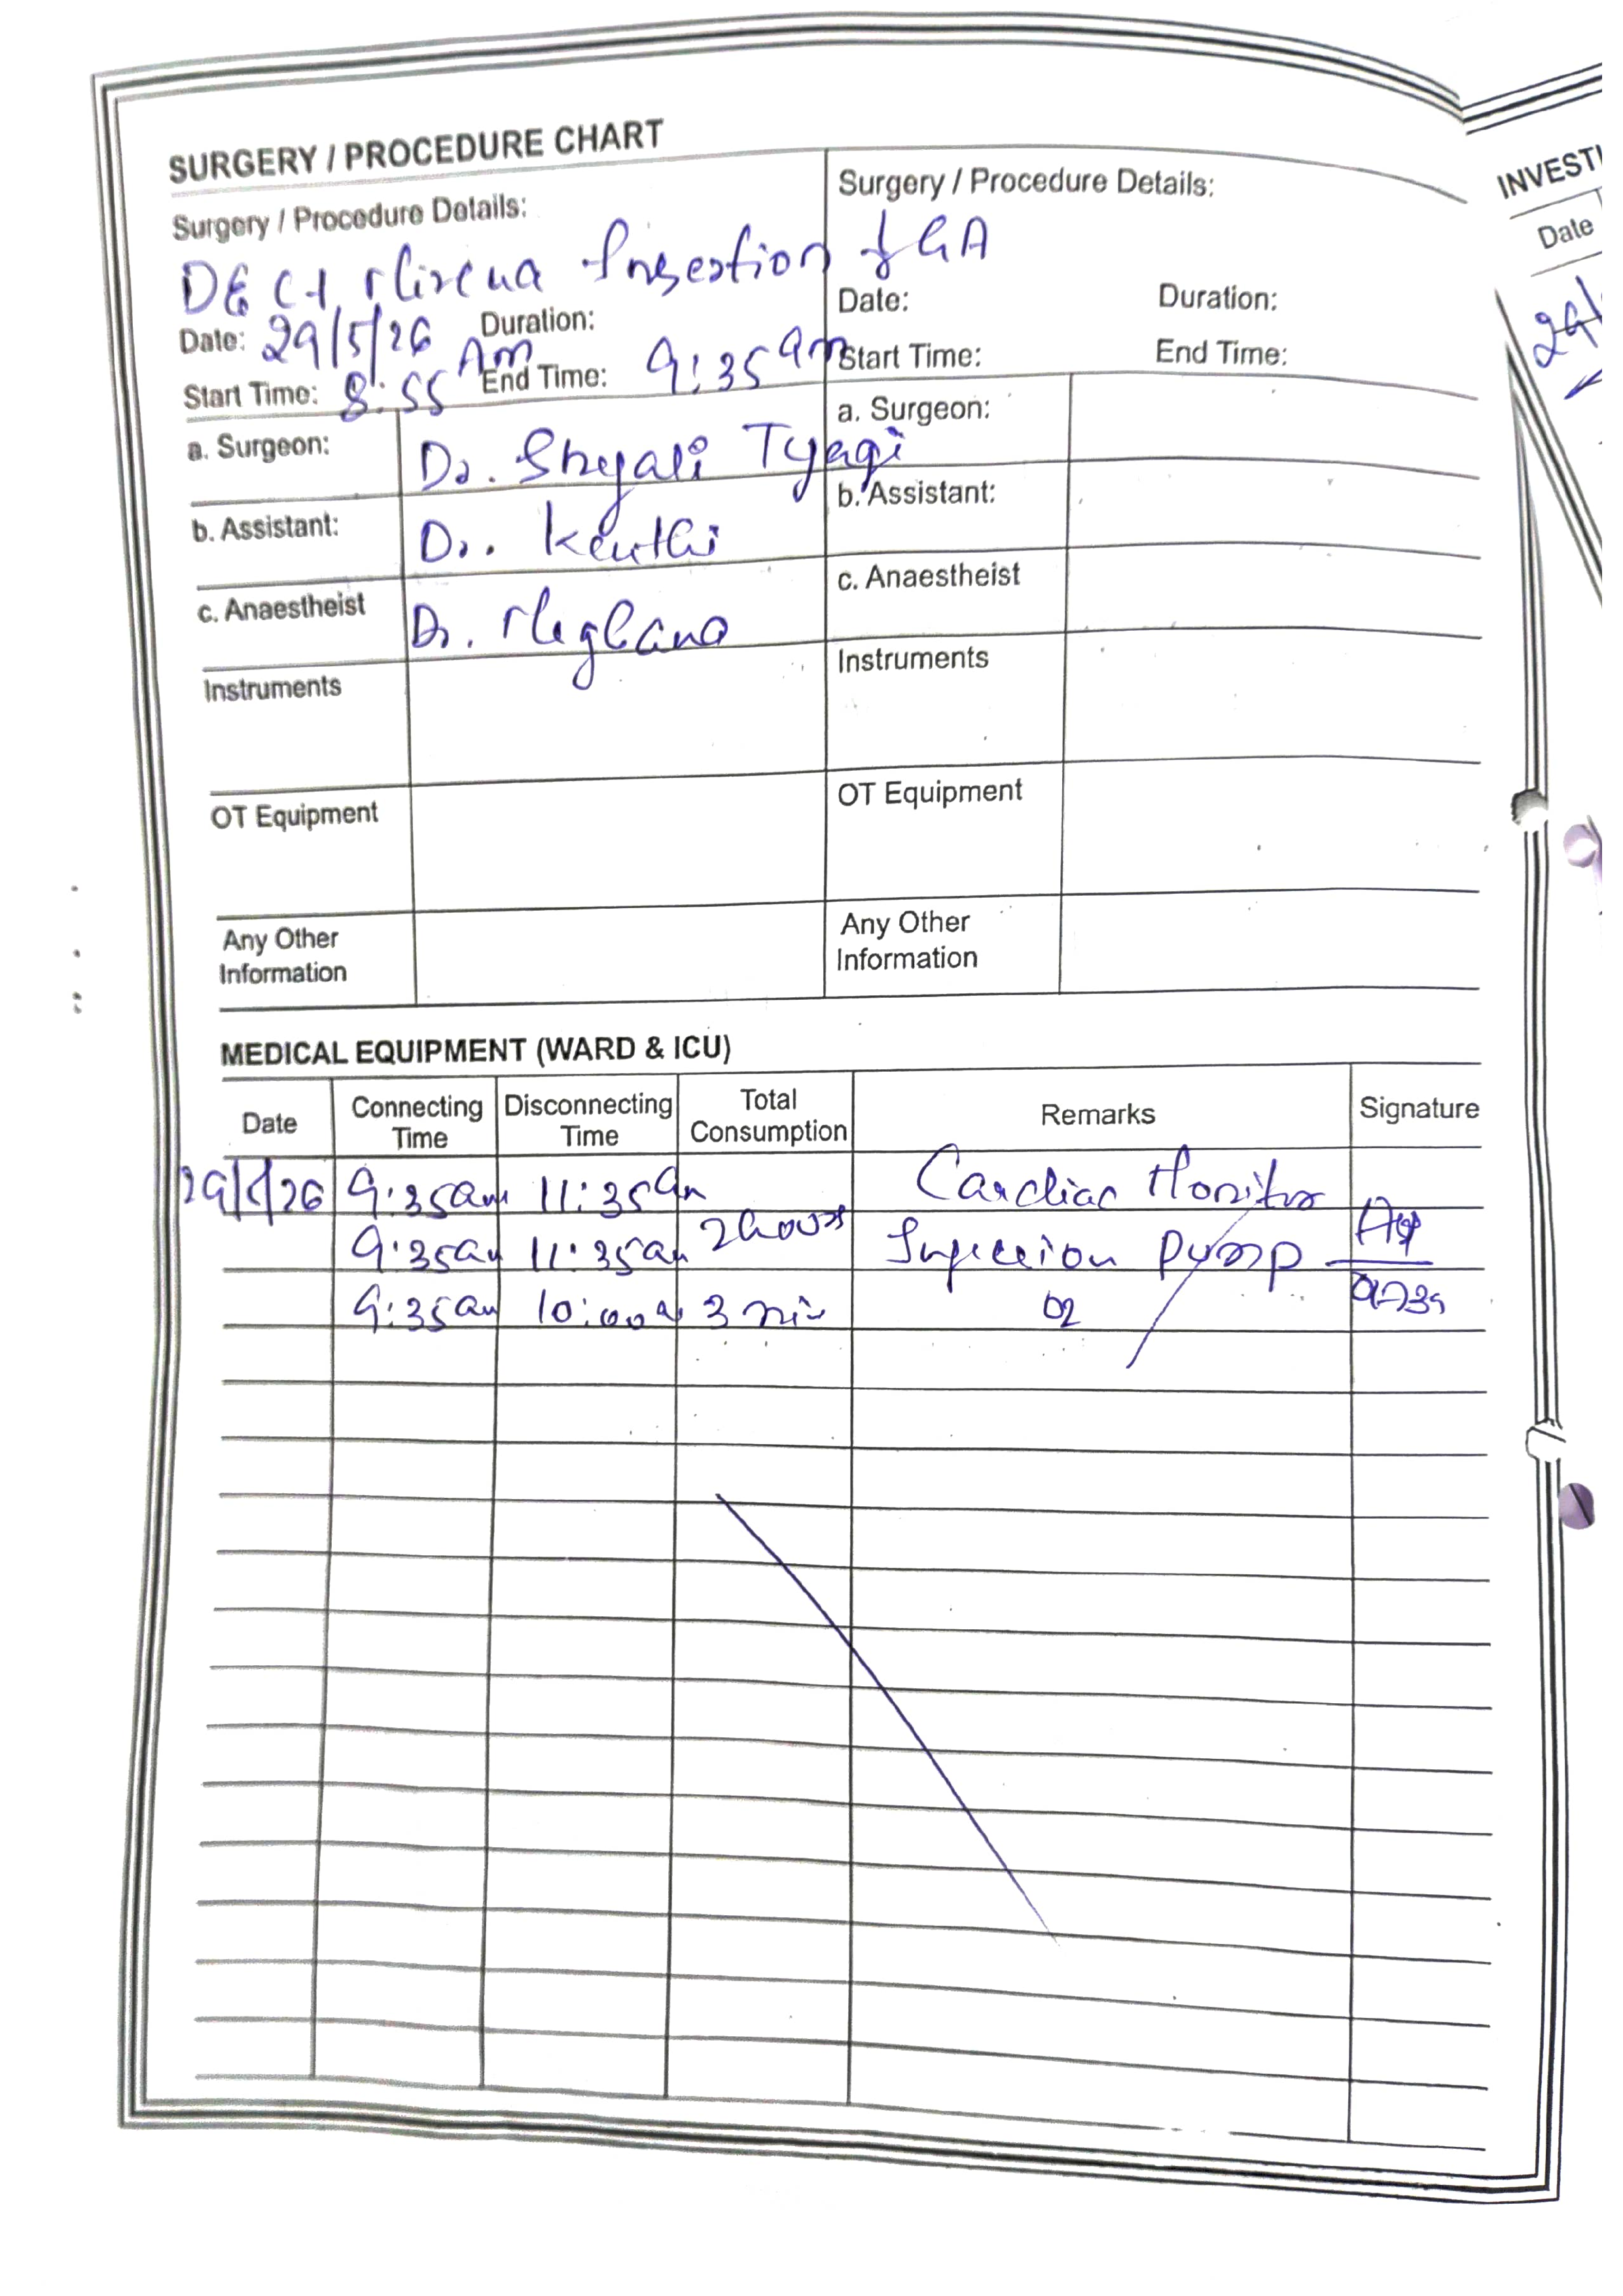 SURGERY / PROCEDURE CHART
Surgery / Procedure Details:
D&C + Mirena Insertion ↓ GA
Date: 29/5/26 Duration:
Start Time: 8:55 Am End Time: 9:35 am
a. Surgeon: Dr. Shejali Tyagi
b. Assistant: Dr.
c. Anaestheist Dr. Meghana
Instruments
OT Equipment
Any Other
Information
Surgery / Procedure Details:
Date: Duration:
Start Time: End Time:
a. Surgeon:
b. Assistant:
c. Anaestheist
Instruments
OT Equipment
Any Other
Information
MEDICAL EQUIPMENT (WARD & ICU)
Date Connecting Time Disconnecting Time Total Consumption Remarks Signature
29/5/26 9:35am 11:35am Cardiac Monitor
9:35am 11:35am 2 hours Infusion Pump
9:35am 10:00a 3 O2
INVESTI
Date
29/